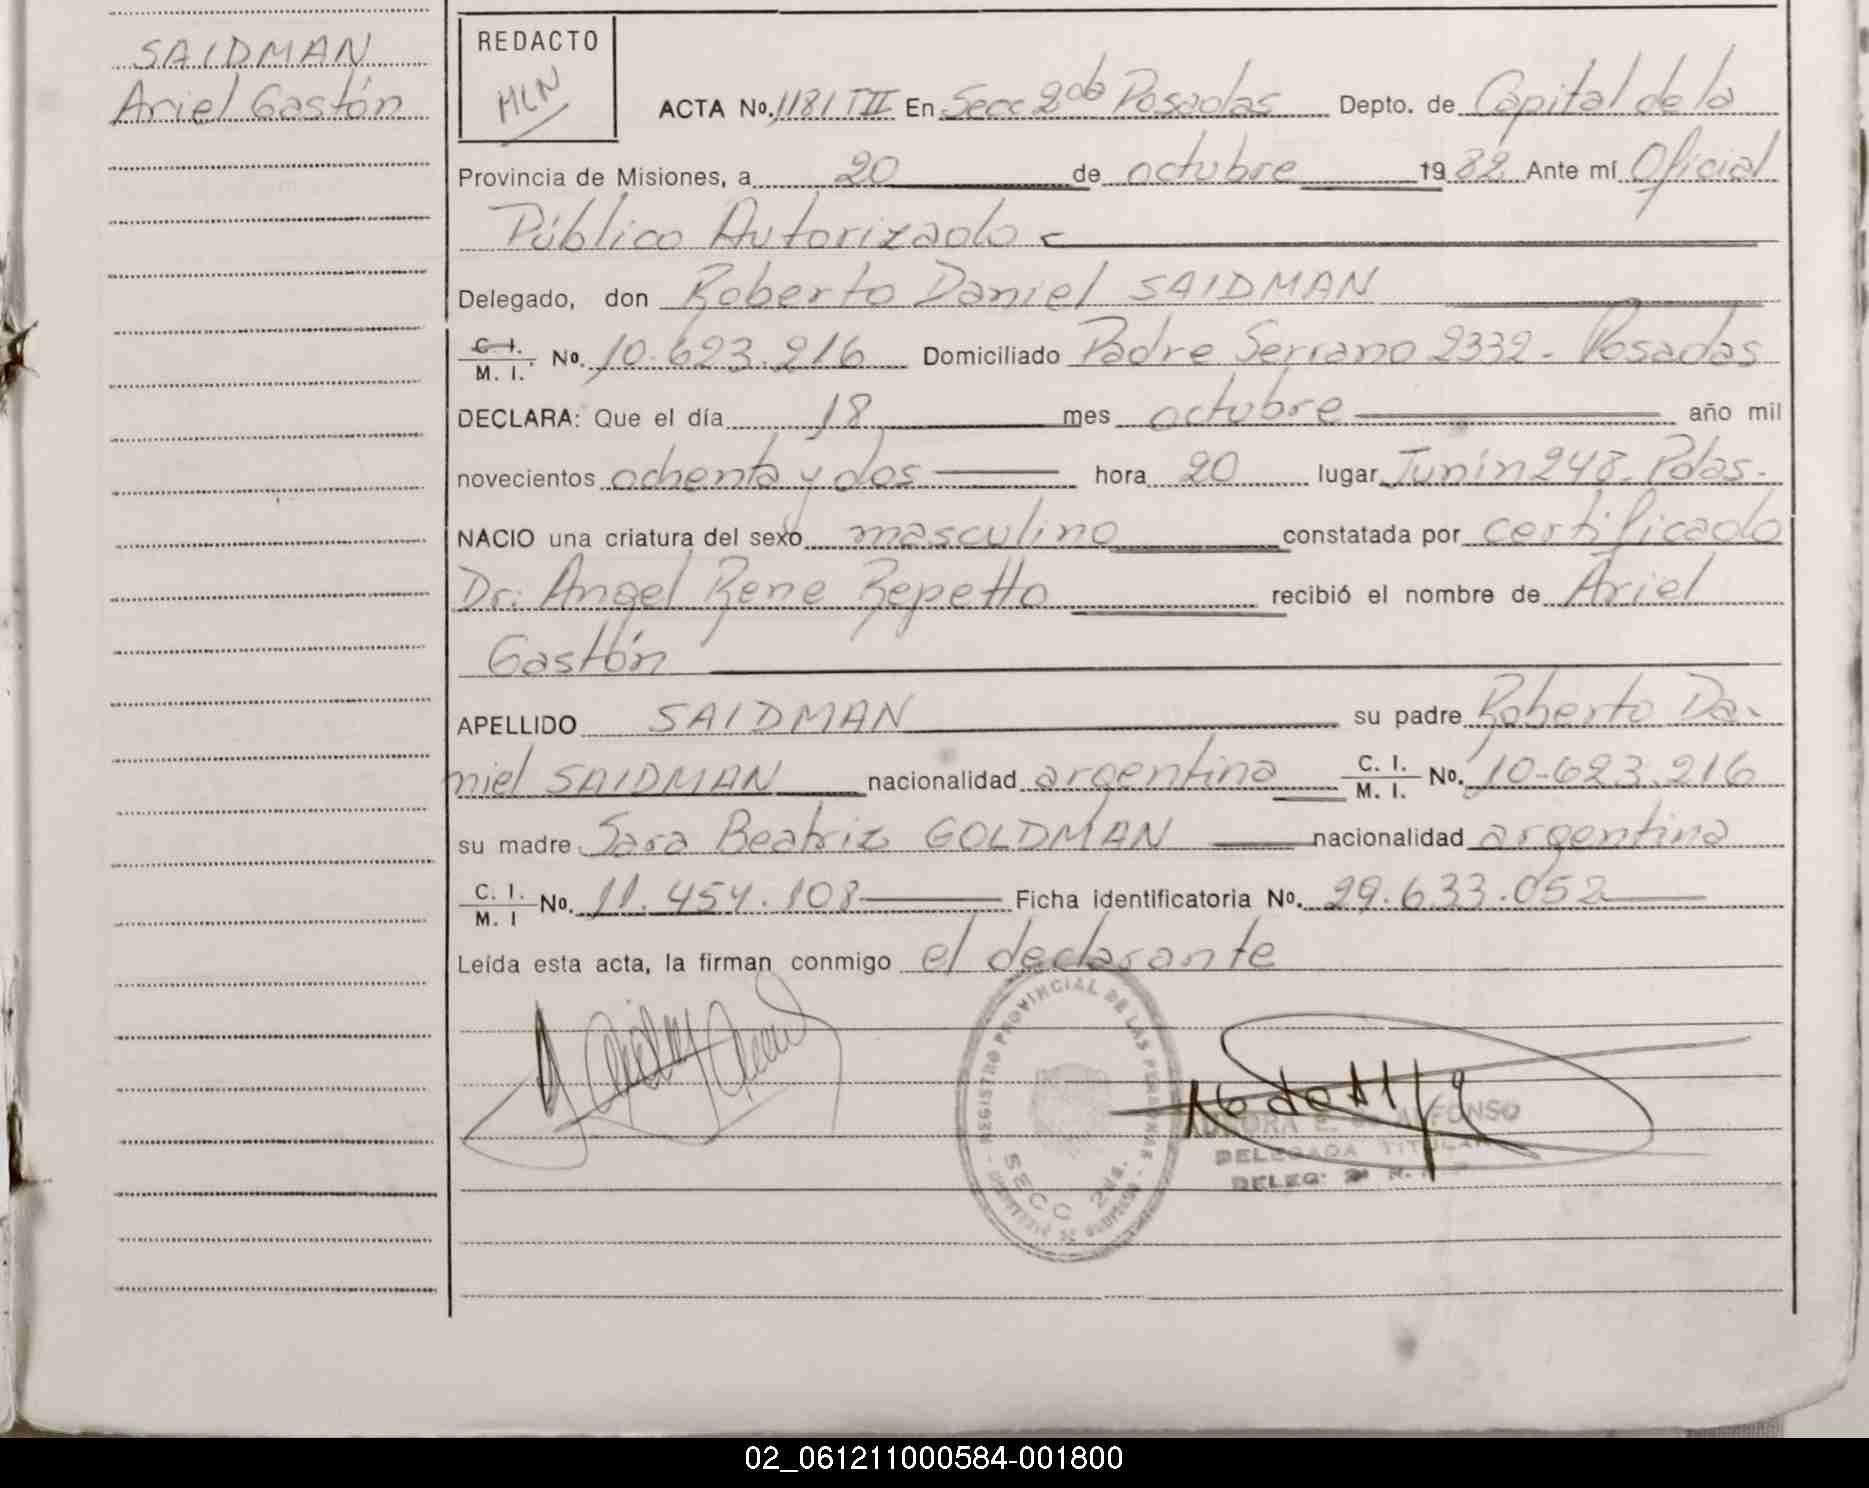 SAIDMAN
Ariel Gastón
REDACTO
MLN
ACTA No. 1181 TII En Secc 2da Posadas Depto. de Capital de la
Provincia de Misiones, a 20 de octubre 1982 Ante mí Oficial
Público Autorizado
Delegado, don Roberto Daniel SAIDMAN
C. I. M. I. No. 10.623.216 Domiciliado Padre Serrano 2332 - Posadas
DECLARA: Que el día 18 mes octubre año mil
novecientos ochenta y dos hora 20 lugar Junin 248 - Pdas.
NACIO una criatura del sexo masculino constatada por certificado
Dr. Angel Rene Repetto recibió el nombre de Ariel
Gastón
APELLIDO SAIDMAN su padre Roberto Da-
niel SAIDMAN nacionalidad argentina C. I. M. I. No. 10-623.216
su madre Sara Beatriz GOLDMAN nacionalidad argentina
C. I. M. I No. 11.454.108 Ficha identificatoria No. 29.633.052
Leída esta acta, la firman conmigo el declarante
REGISTRO PROVINCIAL DE LAS PERSONAS
SECC 2da.
AURORA E. ALFONSO
DELEGADA TITULAR
DELEG. 2a
02_061211000584-001800